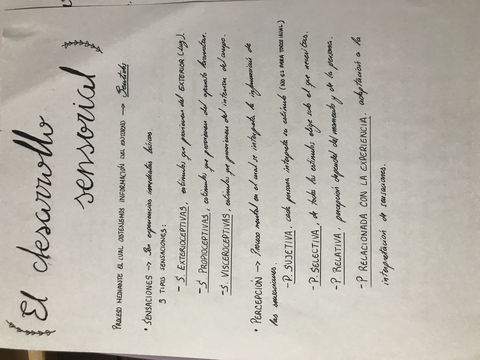 El desarrollo
sensorial
PROCESO MEDIANTE EL CUAL OBTENEMOS INFORMACIÓN DEL ENTORNO → Sentidos
• SENSACIONES → Son experiencias inmediatas básicas.
3 TIPOS SENSACIONES:
- S. EXTEROCEPTIVAS, estímulos que provienen del EXTERIOR (luz).
- S. PROPIOCEPTIVAS, estímulos que provienen del aparato locomotor.
- S. VISCEROCEPTIVAS, estímulos que provienen del interior del cuerpo.
• PERCEPCIÓN → Proceso mental en el cual se interpreta la información de
las sensaciones.
- P. SUJETIVA, cada persona interpreta su estímulo (NO ES PARA TODOS IGUAL)
- P. SELECTIVA, de todos los estímulos elige solo el que necesitas.
- P. RELATIVA, percepción depende del momento y de la persona.
- P. RELACIONADA CON LA EXPERIENCIA, adaptación a la
interpretación de sensaciones.